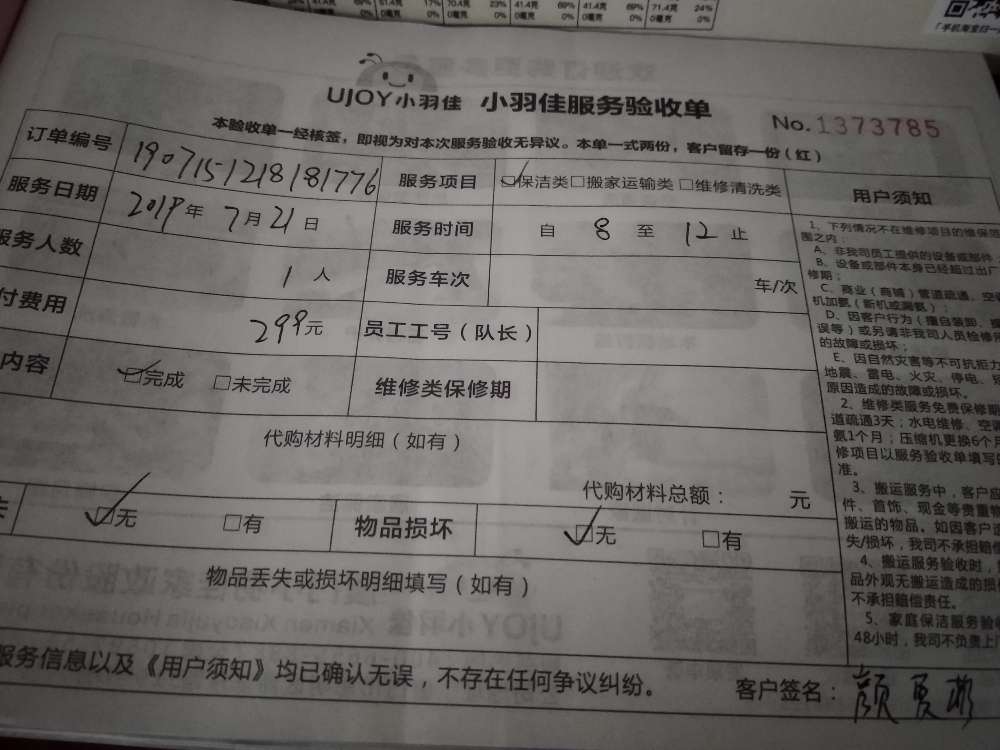 41.4克 69% 51.4克 17% 70.4克 23% 41.4克 69% 41.4克 69% 71.4克 24%
0毫克 0% 0毫克 0% 0毫克 0% 0毫克 0% 0毫克 0%
「手机淘宝扫一
UJOY小羽佳 小羽佳服务验收单
No.1373785
本验收单一经核签，即视为对本次服务验收无异议。本单一式两份，客户留存一份（红）
订单编号 190715-1218181776 服务项目 ☑保洁类□搬家运输类□维修清洗类
服务日期 2019年7月21日 服务时间 自 8 至 12 止
服务人数 1人 服务车次 车/次
付费用 299元 员工工号（队长）
内容 ☑完成 □未完成 维修类保修期
代购材料明细（如有）
代购材料总额： 元
☑无 □有 物品损坏 ☑无 □有
物品丢失或损坏明细填写（如有）
服务信息以及《用户须知》均已确认无误，不存在任何争议纠纷。
客户签名：颜夏彬
用户须知
1、下列情况不在维修项目的维保范
围之内：
A、非我司员工提供的设备或部件
B、设备或部件本身已经超过出厂
修期；
C、商业（商铺）管道疏通、空
机加氨（新机或漏氨）；
D、因客户行为（擅自装卸、
误等）或另请非我司人员检修
的故障或损坏；
E、因自然灾害等不可抗拒力
地震、雷电、火灾、停电、
原因造成的故障或损坏。
2、维修类服务免费保修期
道疏通3天；水电维修、空
氨1个月；压缩机更换6个月
修项目以服务验收单填写
准。
3、搬运服务中，客户应
件、首饰、现金等贵重物
搬运的物品。如因客户
失/损坏，我司不承担赔偿
4、搬运服务验收时，
品外观无搬运造成的损
不承担赔偿责任。
5、家庭保洁服务验收
48小时，我司不负责上